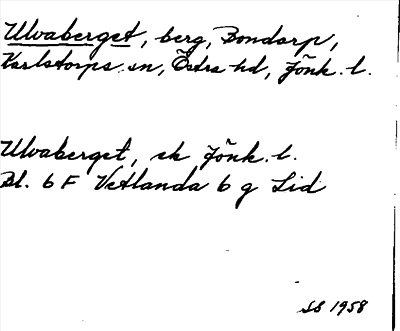 Ulvaberget, berg, Bondarp,
Karlstorps sn, Östra hd, Jönk. l.
Ulvaberget, ek Jönk. l.
Bl. 6 F Vetlanda 6 g Lid
SB 1958